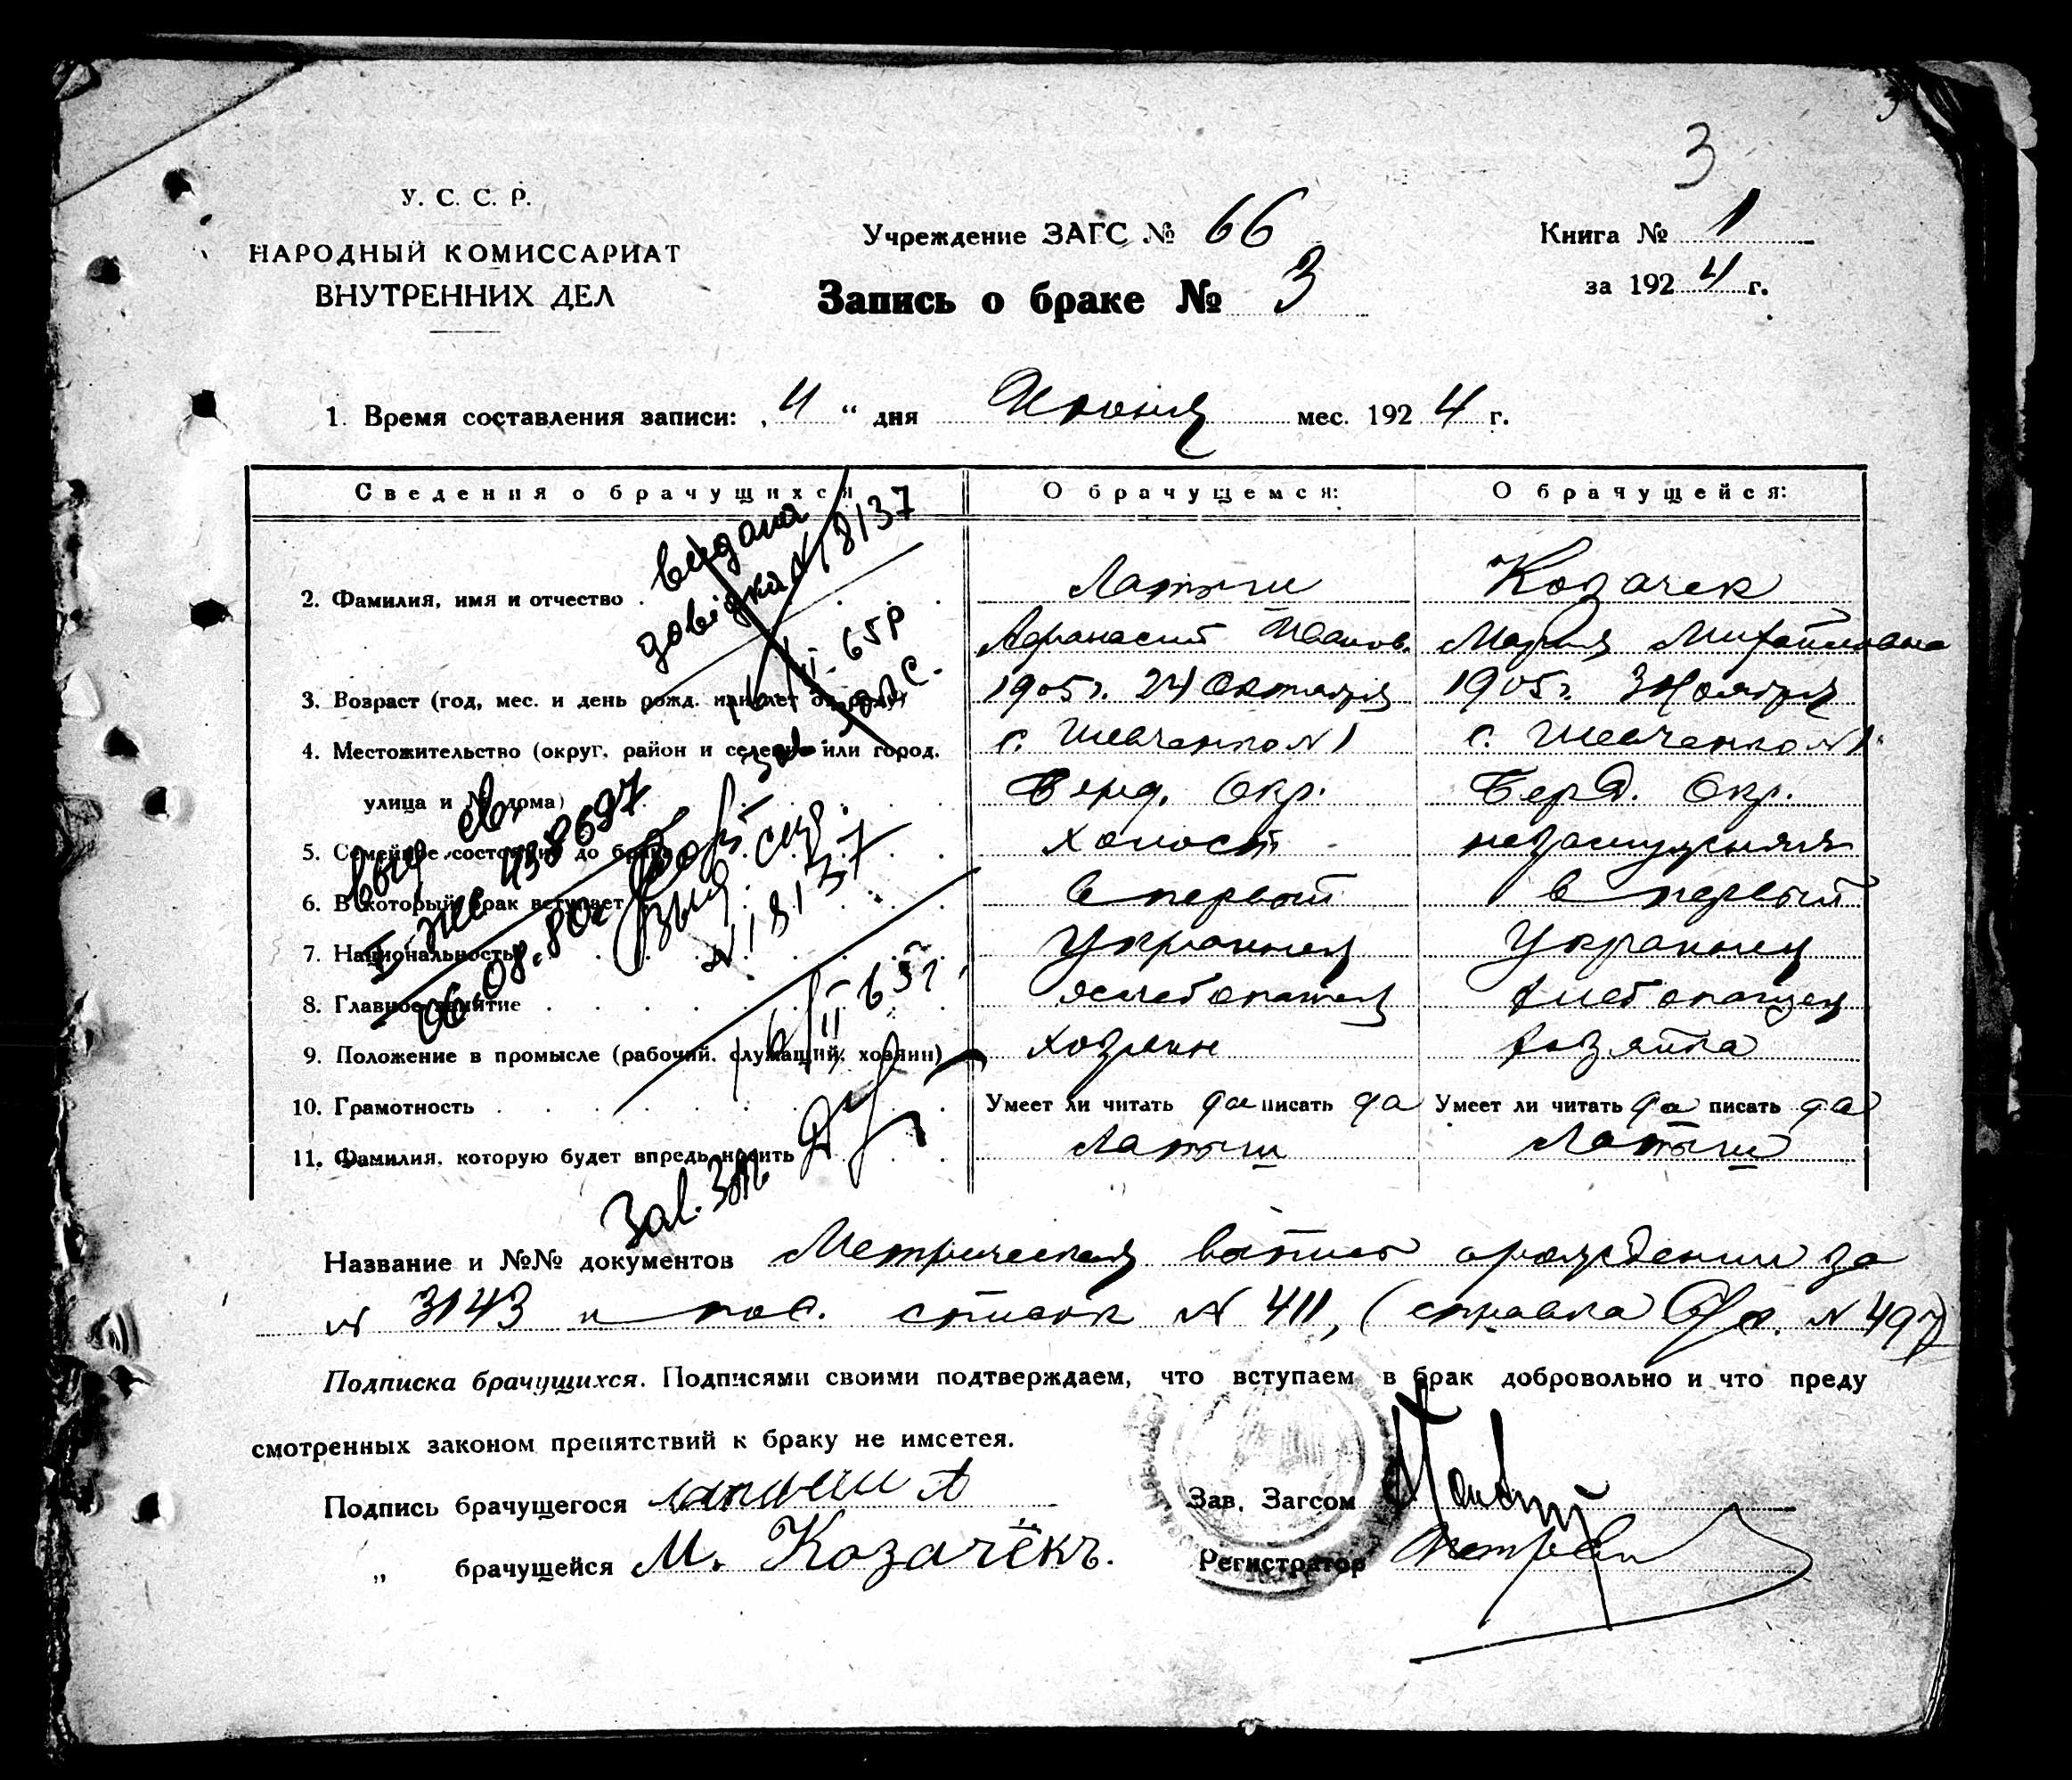 3
У. С. С. Р.
НАРОДНЫЙ КОМИССАРИАТ
ВНУТРЕННИХ ДЕЛ
Учреждение ЗАГС № 66
Запись о браке № 3
Книга № 1
за 1924 г.
1. Время составления записи: „4“ дня Июня мес. 1924 г.
Сведения о брачущихся О брачущемся: О брачущейся:
2. Фамилия, имя и отчество Латыш Козачек
Афанасий Иванов. Мария Михайловна
3. Возраст (год, мес. и день рожд. или лет от роду) 1905г. 24 Октября 1905г. 3 Ноября
4. Местожительство (округ, район и селение или город, с. Шевченко N1 с. Шевченко N1
улица и № дома) Берд. Окр. Берд. Окр.
5. Семейное состояние до брака холост незамужняя
6. В который брак вступает в первый в первый
7. Национальность Украинец Украинец
8. Главное занятие хлебопашец хлебопашец
9. Положение в промысле (рабочий, служащий, хозяин) хозяин хозяйка
10. Грамотность Умеет ли читать да писать да Умеет ли читать да писать да
11. Фамилия, которую будет впредь носить Латыш Латыш
видана
довідка N 18137
65р
выд. св.
I жс 438697
06.08.80г
выд.
N 18137
16/II 65г.
Зав. Загс
Название и №№ документов Метрическая о рождении за
N 3143 и пос. список N 411, (справка N 497)
Подписка брачущихся. Подписями своими подтверждаем, что вступаем в брак добровольно и что преду
смотренных законом препятствий к браку не имсетея.
Подпись брачущегося Латыш А
Зав. Загсом
„ брачущейся М. Козачёкъ.
Регистратор